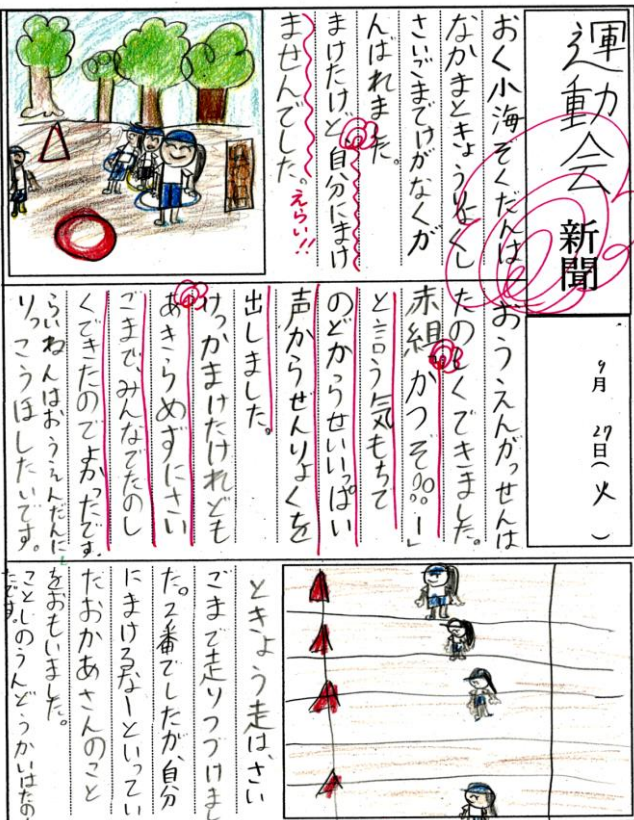 運動会
新聞
9月 27日(火)
おく小海ぞくだんは
なかまときょうりょくし
さいごまでけがなくが
んばれました。
まけたけど自分にまけ
ませんでした。
えらい!!
おうえんがっせんは
たのしくできました。
赤組かつぞ
と言う気もちで
のどからせいいっぱい
声からぜんりょくを
出しました。
けっかまけたけれども
あきらめずにさい
ごまで、みんなでたのし
くできたのでよかったです。
らいねんはおうえんだんに
りっこうほしたいです。
ときょう走は、さい
ごまで走りつづけまし
た。2番でしたが、自分
にまけるなーといってい
たおかあさんのこと
をおもいました。
ことしのうんどうかいはたの